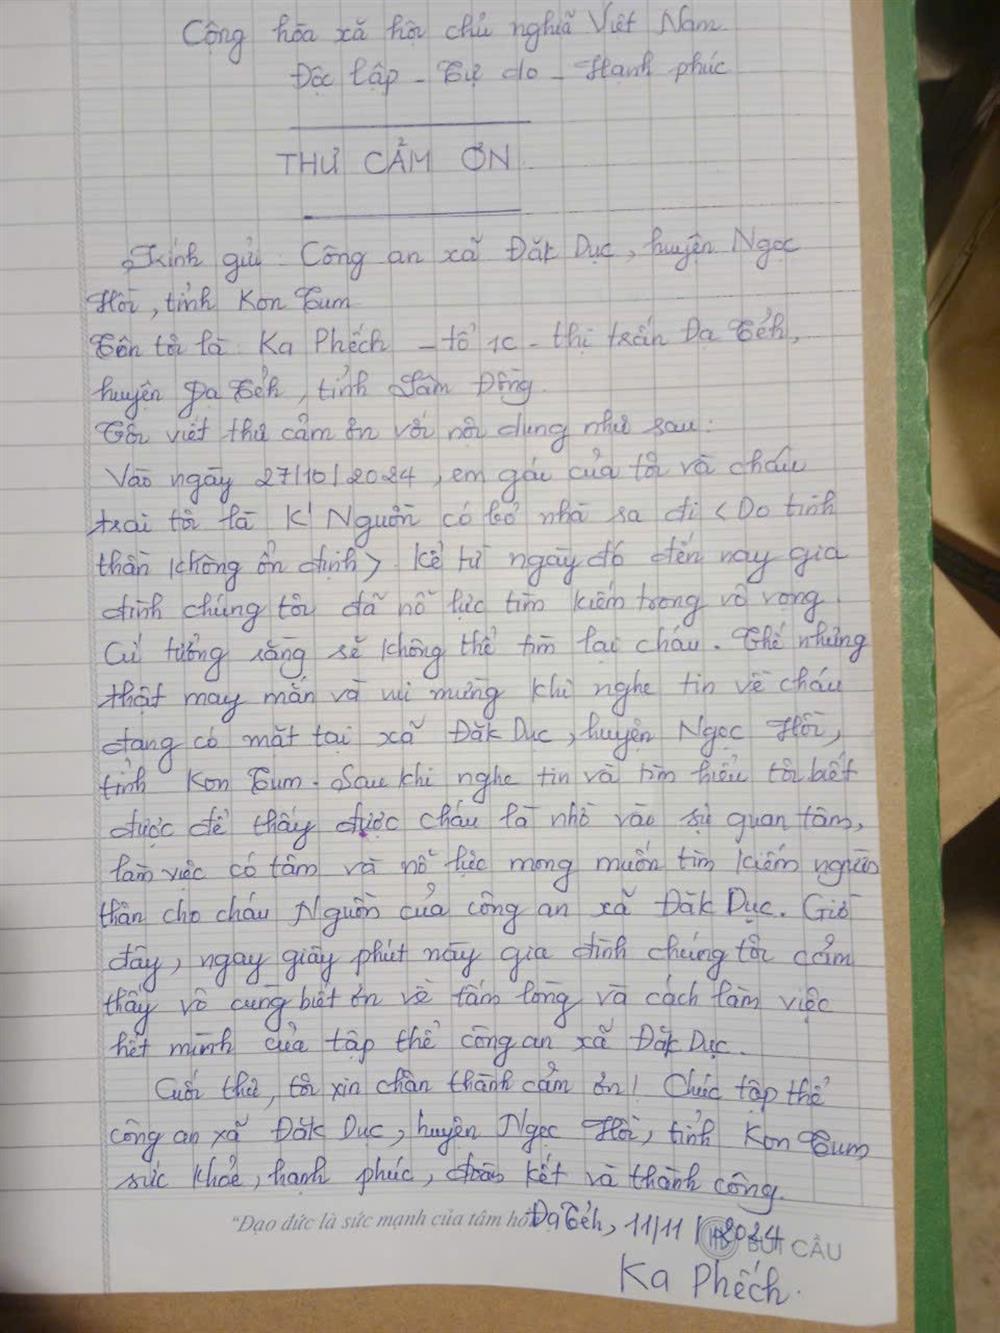 Cộng hòa xã hội chủ nghĩa Việt Nam
Độc lập - Tự do - Hạnh phúc
THƯ CẢM ƠN
Kính gửi: Công an xã Đăk Dục, huyện Ngọc
Hồi, tỉnh Kon Tum
Tên tôi là: Ka Phếch - tổ 1c - thị trấn Đạ Tẻh,
huyện Đạ Tẻh, tỉnh Lâm Đồng.
Tôi viết thư cảm ơn với nội dung như sau:
Vào ngày 27/10/2024, em gái của tôi và cháu
trai tôi là K' Nguồn có bỏ nhà ra đi (Do tinh
thần không ổn định). Kể từ ngày đó đến nay gia
đình chúng tôi đã nỗ lực tìm kiếm trong vô vọng.
Cứ tưởng rằng sẽ không thể tìm lại cháu. Thế nhưng
thật may mắn và vui mừng khi nghe tin về cháu
đang có mặt tại xã Đăk Dục, huyện Ngọc Hồi,
tỉnh Kon Tum. Sau khi nghe tin và tìm hiểu tôi biết
được để thấy được cháu là nhờ vào sự quan tâm,
làm việc có tâm và nỗ lực mong muốn tìm kiếm người
thân cho cháu Nguồn của công an xã Đăk Dục. Giờ
đây, ngay giây phút này gia đình chúng tôi cảm
thấy vô cùng biết ơn về tấm lòng và cách làm việc
hết mình của tập thể công an xã Đăk Dục.
Cuối thư, tôi xin chân thành cảm ơn! Chúc tập thể
công an xã Đăk Dục, huyện Ngọc Hồi, tỉnh Kon Tum
sức khỏe, hạnh phúc, đoàn kết và thành công.
"Đạo đức là sức mạnh của tâm hồ
Đạ Tẻh, 11/11/2024
CẦU
Ka Phếch.